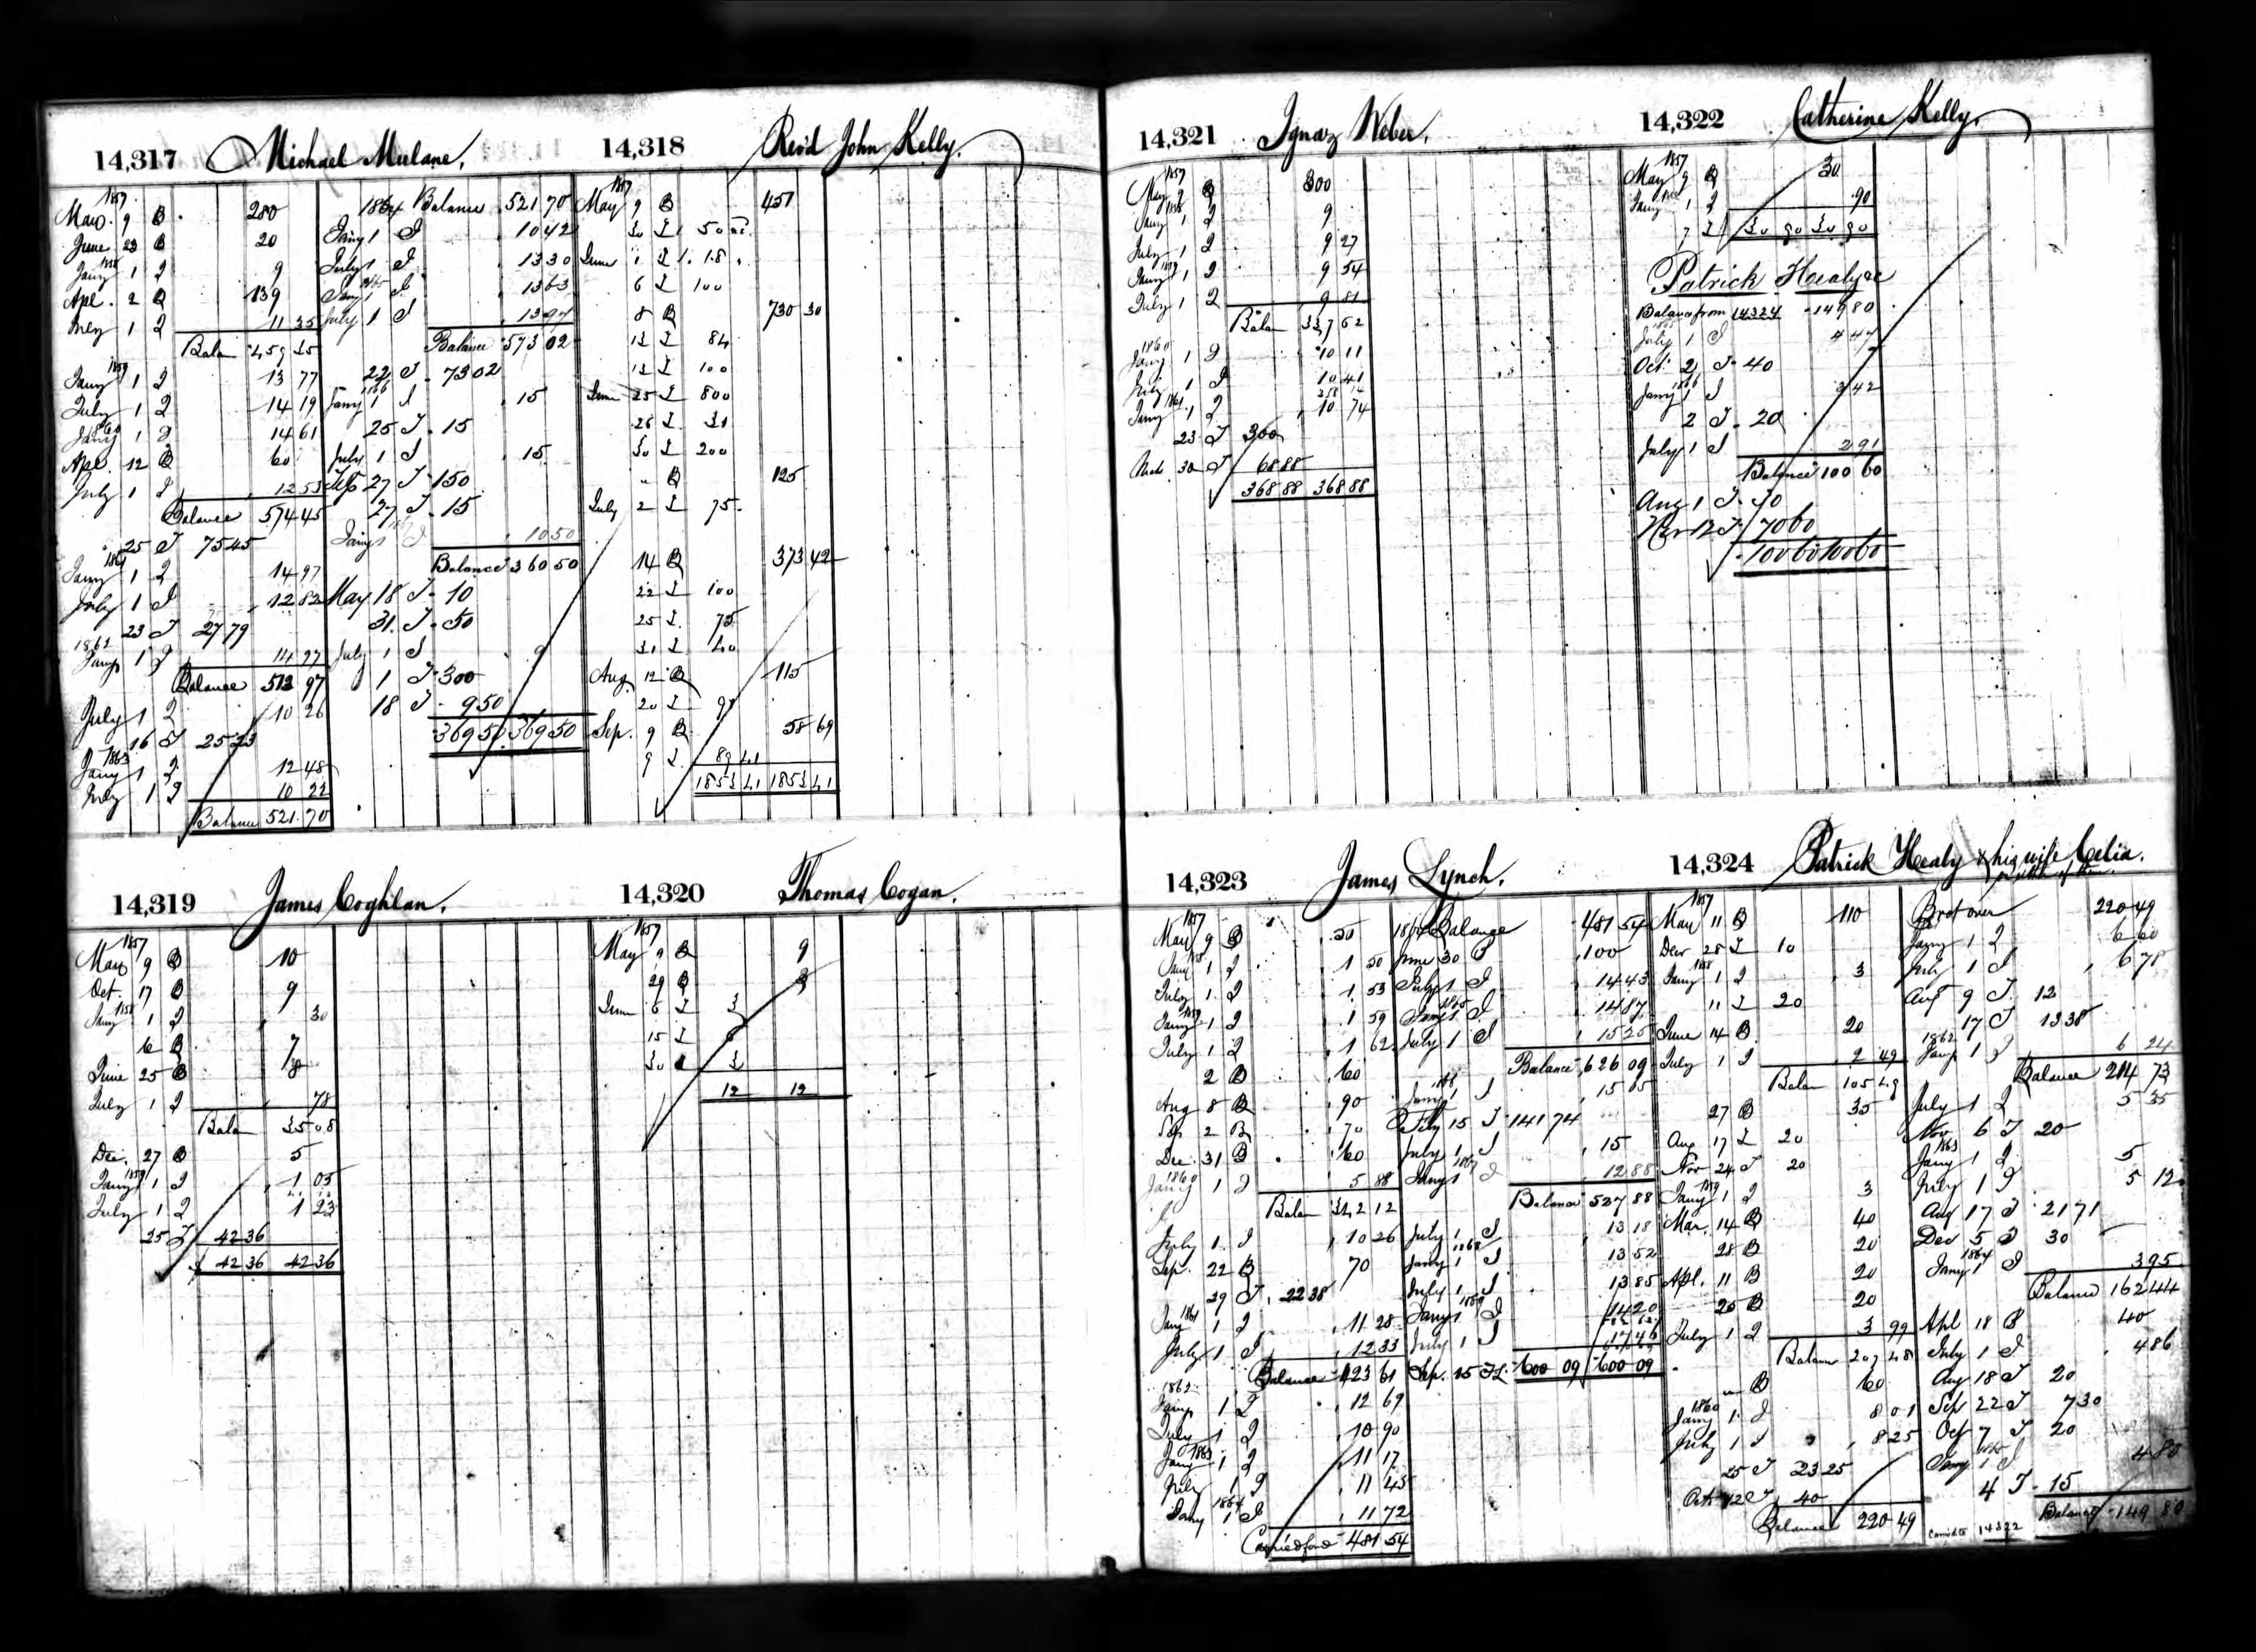 14,317 Michael Mulane.
1857
May. 9 B. 280
June 23 B 20
1858
Jany 1 I 9
Apl. 2 B 139
July 1 I 11 35
Bala 459 35
1859
Jany 1 I 13 77
July 1 I 14 19
1860
Jany 1 I 14 61
Apl. 12 B 60
July 1 I 12 53
Balance 574 45
25 T 75 45
1861
Jany 1 I 14 97
July 1 I 12 82
23 T 27 79
1862
Jany 1 I 14 97
Balance 513 97
July 1 I 10 26
16 T 25 23
1863
Jany 1 I 12 48
July 1 I 10 22
Balance 521.70
1864 Balance 521 70
Jany 1 I 10 42
July 1 I 13 30
1865
Jany 1 I 13 63
July 1 I 13 97
Balance 573 02
22 T. 73 02
1866
Jany 1 I 15
25 T. 15
July 1 I 15
Sep 27 T. 150
27 T. 15
Jany 1 I 10 50
Balance 360 50
May 18 T. 10
31. T. 50
July 1 I 9
1 T. 300
18 T. 9 50
369 50 369 50
14,318 Revd John Kelly.
1857
May 9 B 457
30 T 50
June 1 T 18
6 T 100
8 B 730 30
12 T 84
13 T 100
June 25 T 800
26 T 31
30 T 200
" B 125
July 2 T 75
14 B 373 42
22 T 100
25 T 75
31 T 40
Aug. 12 B 115
20 T 97
Sep. 9 B 58 69
9 T 89 41
14,319 James Coghlan.
1857
May 9 B 10
Oct. 17 B 9
1858
Jany 1 I 30
16 B 7
June 25 B 8
July 1 I 78
Bala 35 08
Dec. 27 B 5
1859
Jany 1 I 1 05
July 1 I 1 23
25 T 42 36
42 36 42 36
14,320 Thomas Cogan.
1857
May 9 B 9
29 B 3
June 6 T 3
15 T 6
30 T 3
12 12
14,321 Ignaz Weber.
1857
May 9 B 300
1858
Jany 1 I 9
July 1 I 9 27
1859
Jany 1 I 9 54
July 1 I 9 81
Bala 337 62
1860
Jany 1 I 10 11
July 1 I 10 41
358 14
1861
Jany 1 I 10 74
23 T 300
30 T 68 88
368 88 368 88
14,322 Catherine Kelly.
1857
May 9 B 30
Jany 1 I 90
7 T 30 90 30 90
Patrick Healy
Balance from 14324 149 80
1865
July 1 I 4 47
Oct. 2 T. 40
1866
Jany 1 I 3 42
2 T. 20
July 1 I 2 91
Balance 100 60
Aug 1 T. 30
Nov 12 T. 70 60
100 60 100 60
14,323 James Lynch.
1857
May 9 B 50
1858
Jany 1 I 1 50
July 1 I 1 53
1859
Jany 1 I 1 59
July 1 I 1 62
2 B 60
Aug 8 B 90
Sep 2 B 70
Dec. 31 B 60
1860
Jany 1 I 5 88
Bala 342 12
July 1 I 10 26
Sep. 22 B 70
29 T. 22 38
1861
Jany 1 I 11 28
July 1 I 12 33
Balance 423 61
1862
Jany 1 I 12 69
July 1 I 10 90
1863
Jany 1 I 11 17
July 1 I 11 45
1864
Jany 1 I 11 72
Carried ford 481 54
1864 Balance 481 54
June 30 B 100
July 1 I 14 43
1865
Jany 1 I 14 87
July 1 I 15 25
Balance 626 09
Jany 1 I 15 65
Feby 15 T 141 74
July 1 I 15
1867
Jany 1 I 12 88
Balance 527 88
July 1 I 13 18
1868
Jany 1 I 13 52
July 1 I 13 85
1869
Jany 1 I 14 20
July 1 I 17 46
Sep. 15 600 09 600 09
14,324 Patrick Healy & his wife Celia.
or either of them.
1857
May 11 B 110
Decr 28 T 10
1858
Jany 1 I 3
11 T 20
June 14 B 20
July 1 I 2 49
Balan 105 49
27 B 35
Aug 17 T 20
Nov 24 T 20
1859
Jany 1 I 3
Mar. 14 B 40
28 B 20
Apl. 11 B 20
25 B 20
July 1 I 3 99
Balance 207 48
" B 60
1860
Jany 1 I 8 01
July 1 I 8 25
25 T 23 25
Oct 12 T 40
Balance 220 49
Brot over 220 49
Jany 1 I 6 60
July 1 I 6 78
Aug 9 T. 12
17 T 13 38
1862
Jany 1 I 6 24
Balance 214 73
July 1 I 5 35
Nov 6 T 20
1863
Jany 1 I 5
July 1 I 5 12
Aug 17 T. 21 71
Dec 5 T 30
1864
Jany 1 I 3 95
Balance 162 44
Apl 18 B 40
July 1 I 4 86
Aug 18 T 20
Sep 22 T 7 30
Oct 7 T 20
1865
Jany 1 I 4 80
4 T. 15
Balance 149 80
14322